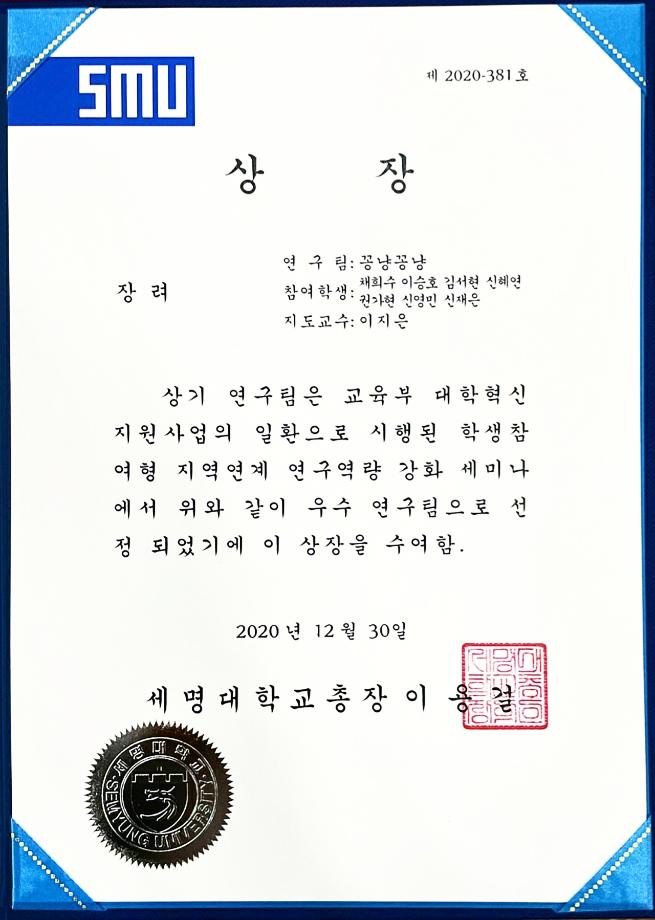 SMU
제 2020-381호
상 장
장 려
연 구 팀: 꽁냥꽁냥
참여학생: 채희수 이승호 김서현 신혜연
권가현 신영민 신재은
지도교수: 이지은
상기 연구팀은 교육부 대학혁신
지원사업의 일환으로 시행된 학생참
여형 지역연계 연구역량 강화 세미나
에서 위와 같이 우수 연구팀으로 선
정 되었기에 이 상장을 수여함.
2020년 12월 30일
세명대학교총장 이용걸
세명대학교
SEMYUNG UNIVERSITY